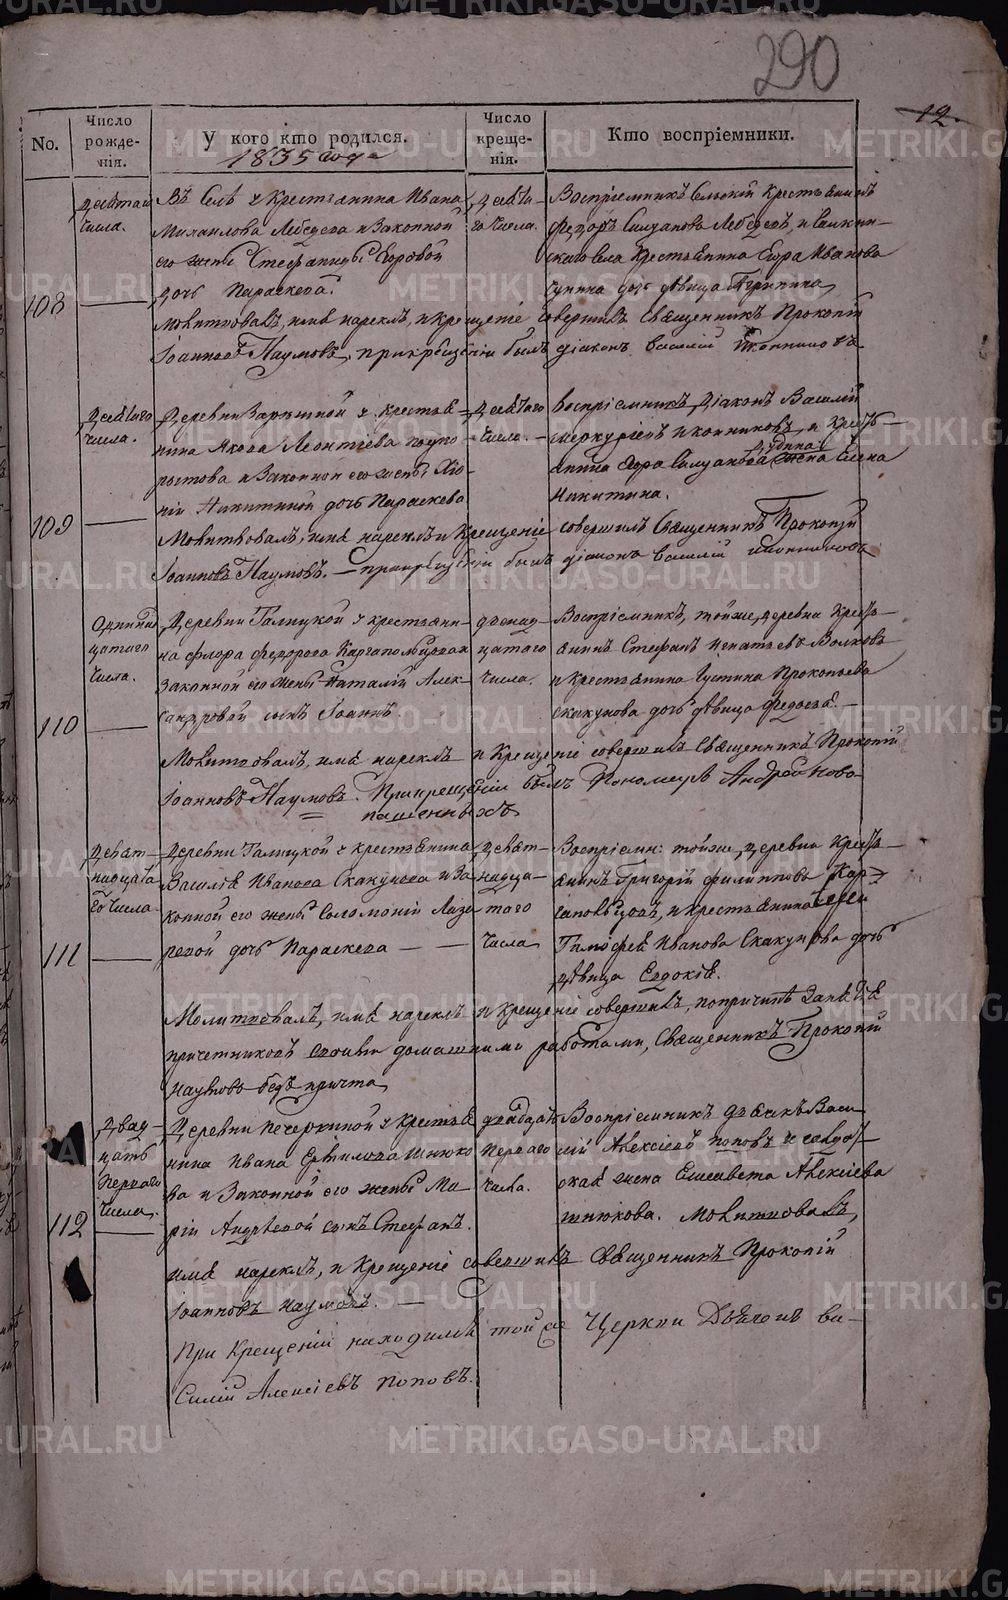 290
12.
No.
Число рожде-нія.
У кого кто родился.
Число креще-нія.
Кто воспріемники.
1835 года
108
Девятаго числа.
Въ Селѣ у Крестьянина Ивана
Михаилова Лебедева и Законной
его жены Стефаниды Егоровой
дочь Параскева.
Девята-
го Числа.
Воспріемникъ Сельскій Крестьянинъ
Федоръ Лебедевъ, и
села Крестьянина Егора Иванова
дочь девица Агрипина
Молитвовалъ, имя нареклъ, и Крещеніе совершилъ Священникъ Прокопій
Іоанновъ Наумовъ, при крещеніи былъ діаконъ Василій Иконниковъ
109
Девятаго
числа.
Деревни у Крестья-
нина Якова Леонтіева
и Законной его жены
Никитиной дочь Параскева
Девятаго
Числа.
воспріемникъ Діаконъ Василій
Меркуріевъ Иконниковъ, и Крест-
янина Егора жена Елена
Никитина.
Молитвовалъ, имя нареклъ и Крещеніе совершилъ Священникъ Прокопій
Іоанновъ Наумовъ. — при крещеніи былъ діаконъ Василій Иконниковъ
110
Одинад
цатаго
Числа.
Деревни Галицкой у крестьяни-
на Флора Федорова
законной его жены Наталіи Алек-
сандровой сынъ Іоаннъ.
двенад
цатаго
Числа.
Воспріемникъ, тойже деревни Крест-
янинъ Стефанъ Игнатьевъ Волковъ
и Крестьянина Густина Прокопьева
Скакунова дочь девица Федосья. —
Молитвовалъ, имя нареклъ и Крещеніе совершилъ Священникъ Прокопій
Іоанновъ Наумовъ. При крещеніи былъ Пономарь Андрей
111
Девят-
надцата
го Числа
Деревни Галицкой у крестьянина
Василья Иванова Скакунова и За
конной его жены Соломоніи Лаза
ревой дочь Параскева — —
Девят-
надца-
таго
Числа
Воспріемн: тойже деревни Крест-
янинъ Григорій Филипповъ
и крестьянина
Тимофея Иванова Скакунова дочь
девица Евдокія.
Молитвовалъ, имя нареклъ и Крещеніе совершилъ, попричинѣ
причетниковъ своими домашними работами, Священникъ Прокопій
Наумовъ безъ причта
112
Двад
цать
Перваго
Числа.
Деревни Печеркиной у Крестья
нина Ивана Шнюко
ва и Законной его жены Ма
ріи Андреевой сынъ Стефанъ.
двадцать
Перваго
Числа.
Воспріемникъ дьячекъ Васи
лій Алексіевъ Поповъ и
жена Елисавета Алексіева
Шнюкова. Молитвовалъ,
имя нареклъ, и Крещеніе совершилъ Священникъ Прокопій
Іоанновъ Наумовъ. —
При Крещеніи находился той же Церкви Дьячекъ Ва-
силій Алексіевъ Поповъ.
METRIKI.GASO-URAL.RU